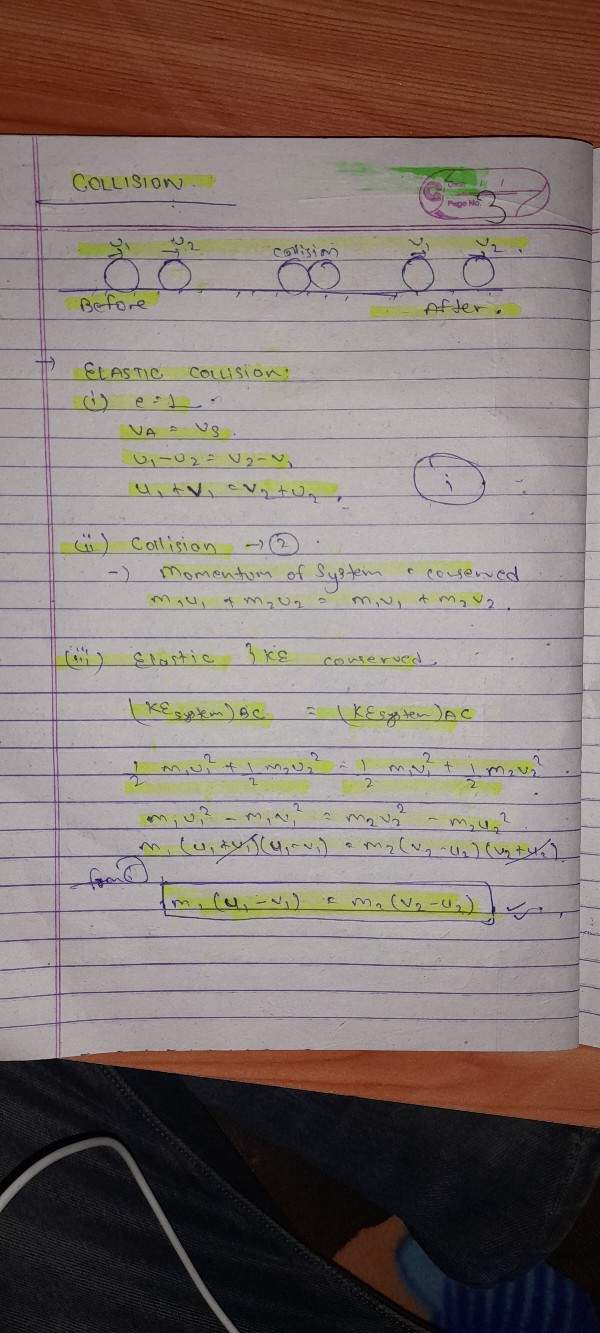 COLLISION.
Date / /
Page No. 3
u1 u2 collision v1 v2
Before After.
→ ELASTIC COLLISION.
(i) e = 1
VA = VS
u1 - u2 = v2 - v1
u1 + v1 = v2 + u2. i
(ii) Collision → 2
→ Momentum of System = conserved
m1u1 + m2u2 = m1v1 + m2v2.
(iii) Elastic } KE conserved.
(KEsystem)BC = (KEsystem)AC
1/2 m1u1² + 1/2 m2u2² = 1/2 m1v1² + 1/2 m2v2²
m1u1² - m1v1² = m2v2² - m2u2²
m1 (u1+v1)(u1-v1) = m2(v2-u2)(v2+u2)
from 1
m1 (u1 - v1) = m2 (v2 - u2)